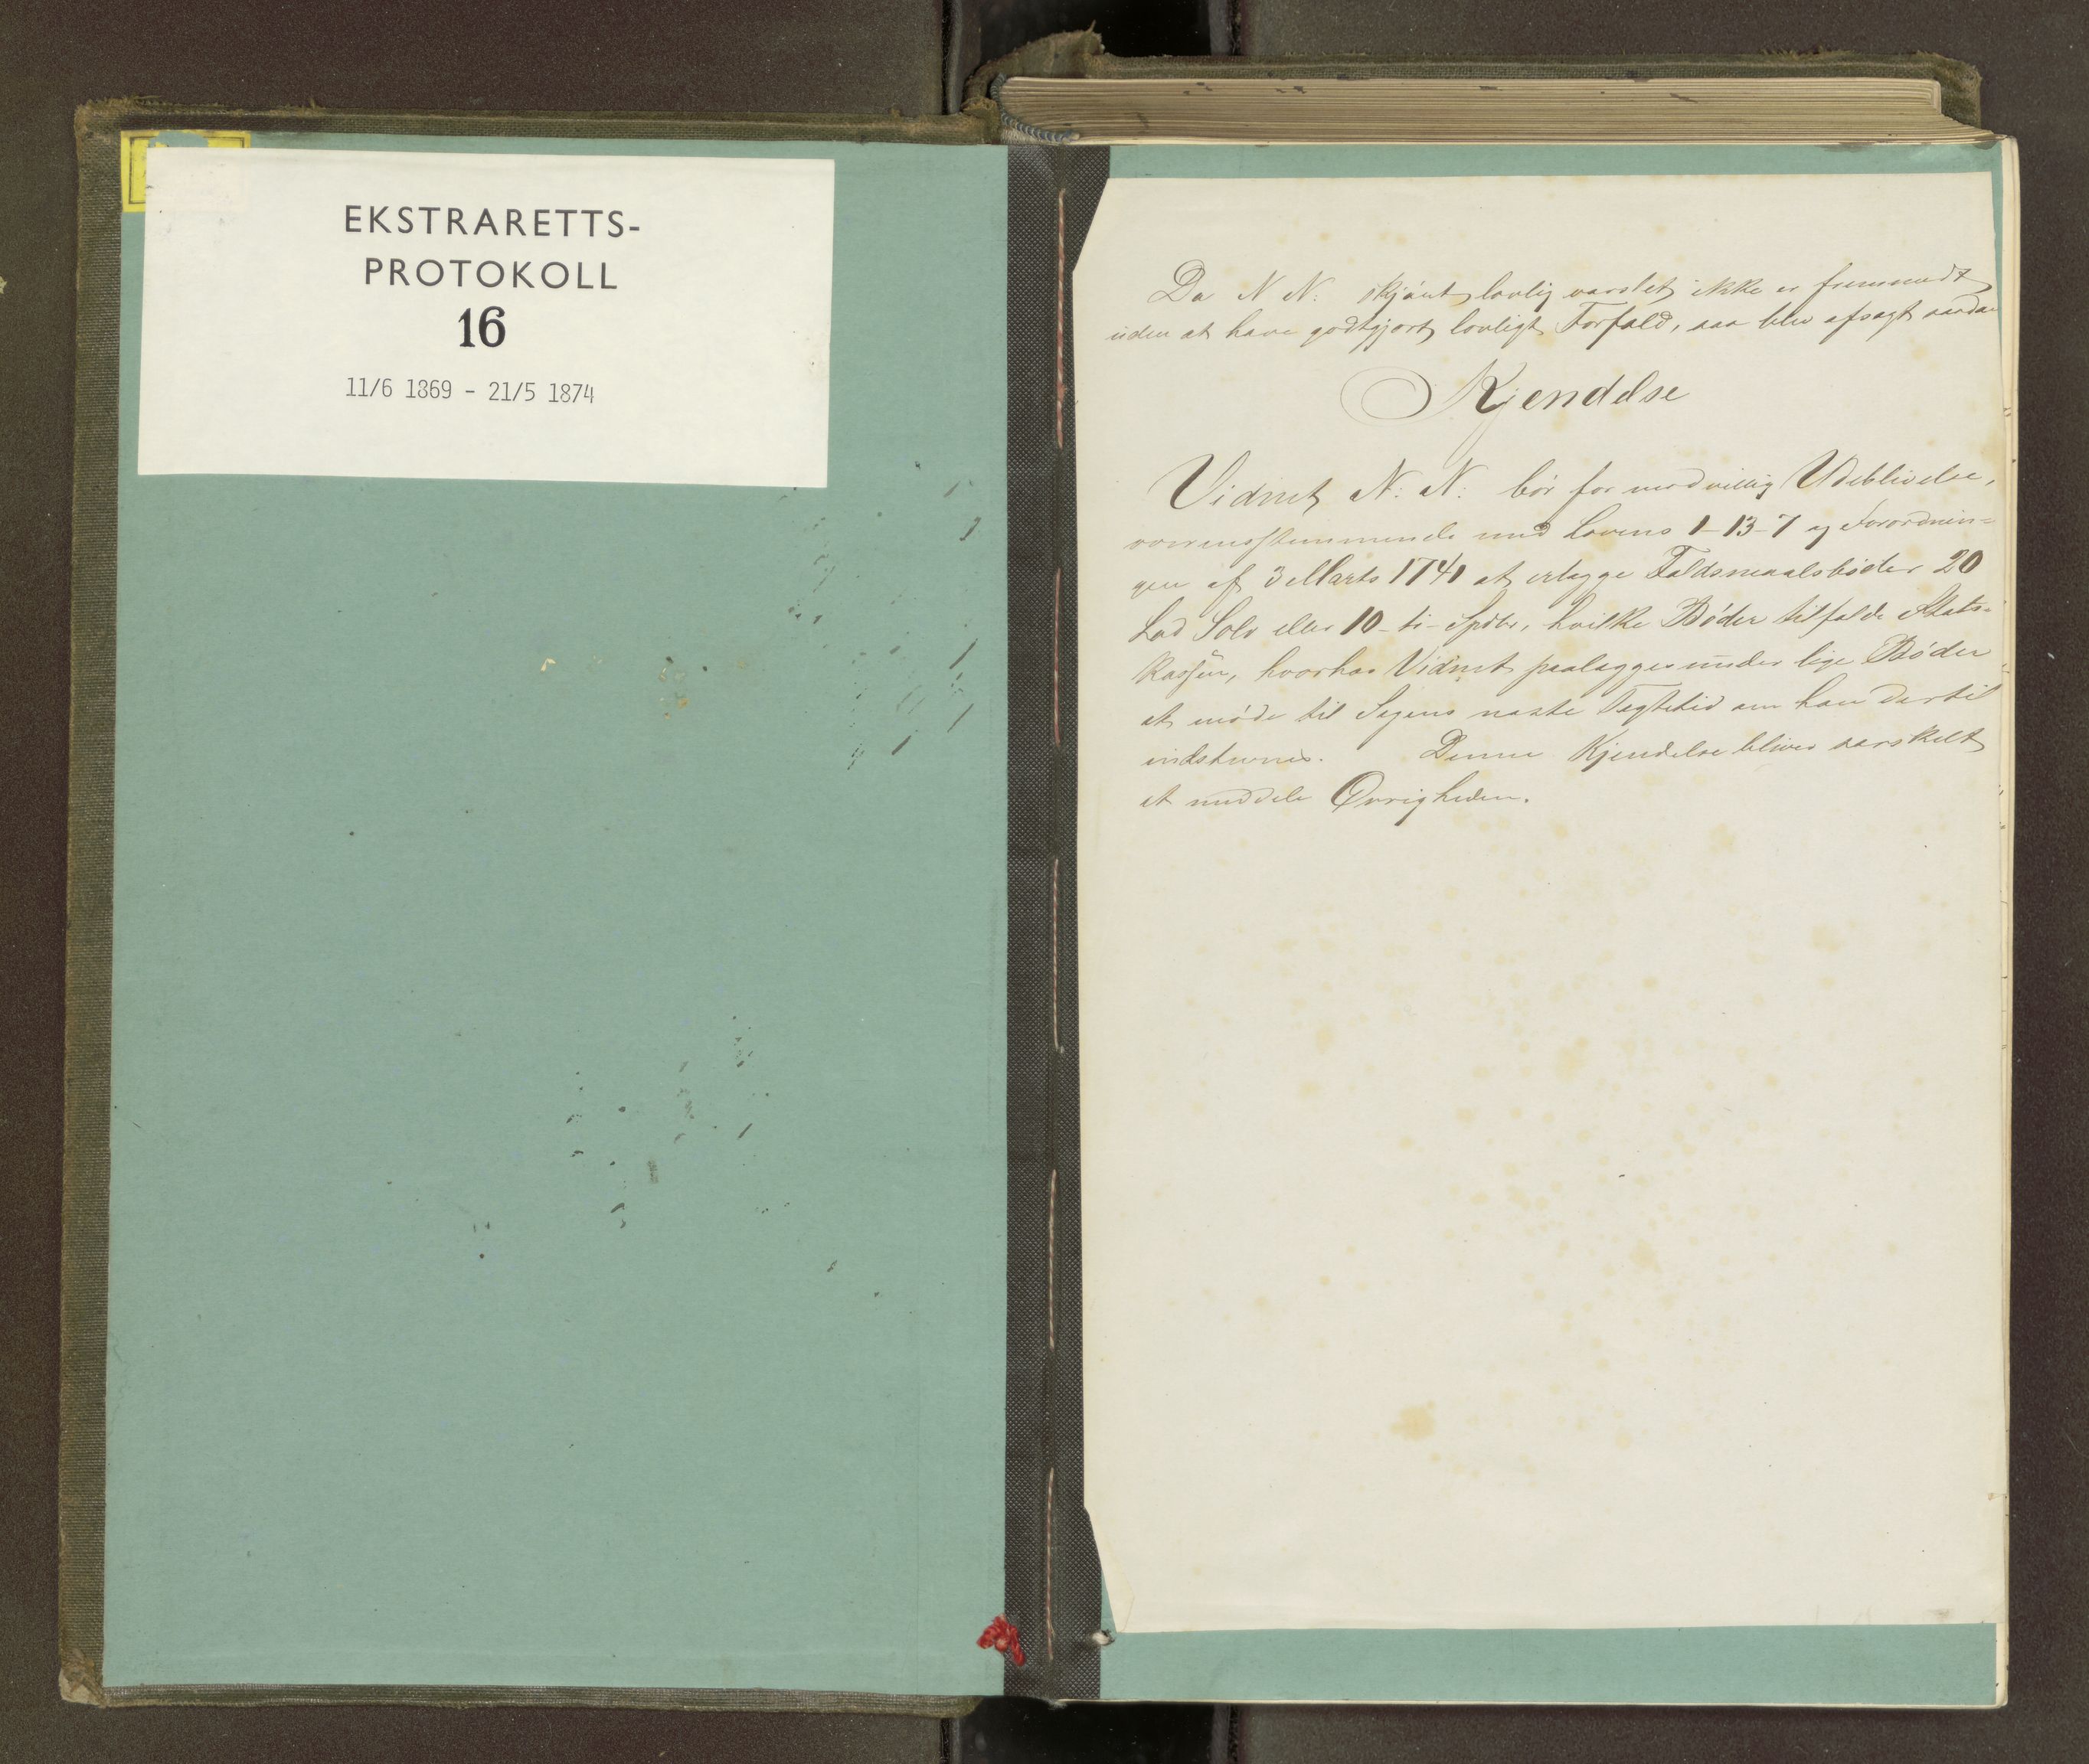 EKSTRARETTS-
PROTOKOLL
16
11/6 1869 - 21/5 1874
Da N N: skjønt lovlig varslet ikke er fremmødt
uden at have godtgjort lovligt Forfald, saa blev afsagt saadan
Kjendelse
Vidnet N: N: bør for modvillig Udeblivelse,
overensstemmende med Lovens 1-13-7 og Forordnin=
gen af 3 Marts 1741 at erlægge Faldsmaalsbøder 20
Lod Sølv eller 10 - ti - Spdlr, hvilke Bøder tilfalde Stats=
kassen, hvorhos Vidnet paalægges under lige Bøder
at møde til Sagens næste Tægtetid om han dertil
indstevnes. Denne Kjendelse bliver særskilt
at meddele Øvrigheden.